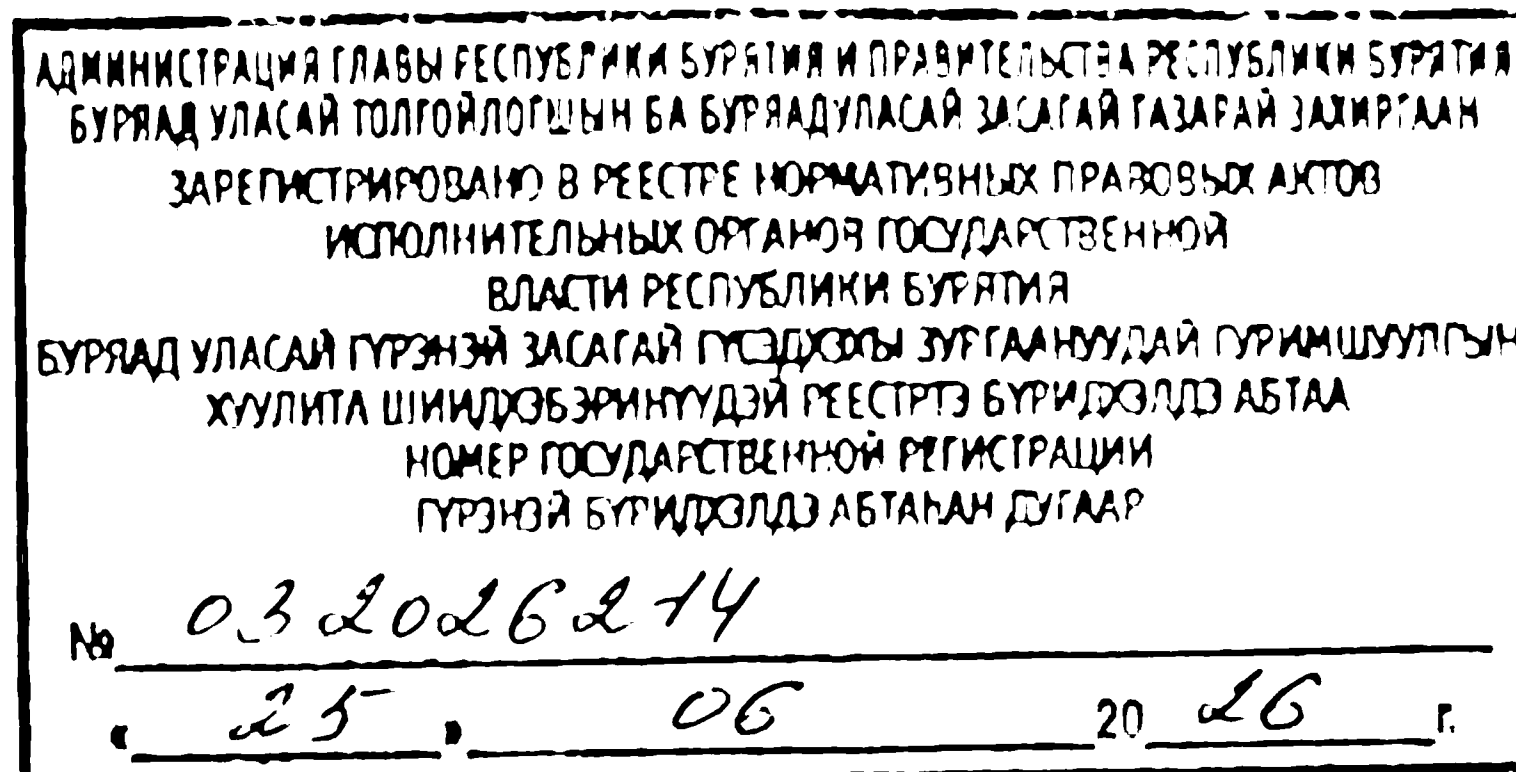 АДМИНИСТРАЦИЯ ГЛАВЫ РЕСПУБЛИКИ БУРЯТИЯ И ПРАВИТЕЛЬСТВА РЕСПУБЛИКИ БУРЯТИЯ
БУРЯАД УЛАСАЙ ТОЛГОЙЛОГШЫН БА БУРЯАД УЛАСАЙ ЗАСАГАЙ ГАЗАРАЙ ЗАХИРГААН
ЗАРЕГИСТРИРОВАНО В РЕЕСТРЕ НОРМАТИВНЫХ ПРАВОВЫХ АКТОВ
ИСПОЛНИТЕЛЬНЫХ ОРГАНОВ ГОСУДАРСТВЕННОЙ
ВЛАСТИ РЕСПУБЛИКИ БУРЯТИЯ
БУРЯАД УЛАСАЙ ГҮРЭНЭЙ ЗАСАГАЙ ГҮСЭДХЭХЫ ЗУРГААНУУДАЙ ГУРИМШУУЛГЫН
ХУУЛИТА ШИИДХЭБЭРИНҮҮДЭЙ РЕЕСТРТЭ БҮРИДХЭЛДЭ АБТАА
НОМЕР ГОСУДАРСТВЕННОЙ РЕГИСТРАЦИИ
ГҮРЭНЭЙ БҮРИДХЭЛДЭ АБТАҺАН ДУГААР
№ 032026214
« 25 » 06 20 26 г.